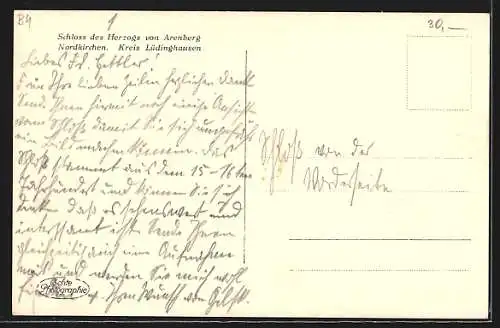 B4
1
30,—
Schloss des Herzogs von Arenberg
Nordkirchen. Kreis Lüdinghausen
Liebes Frl. Hettler!
Für Ihre lieben Zeilen herzlichen Dank
Sende Ihnen hiermit noch einige Ansicht
vom Schloß damit Sie sich ungefähr
ein Bild machen können. Das
Schloß stammt aus dem 15-16ten
Jahrhundert und können Sie sich
denken daß es sehenswert und
interessant ist. Sende Ihnen
gleichzeitig auch eine Aufnahme
mit und werden Sie mich wohl
für Ihren Wunsch von
Schloß von der
Vorderseite
Echte
Photographie